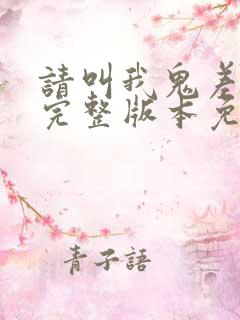 請叫我鬼差
完整版本免
青子語